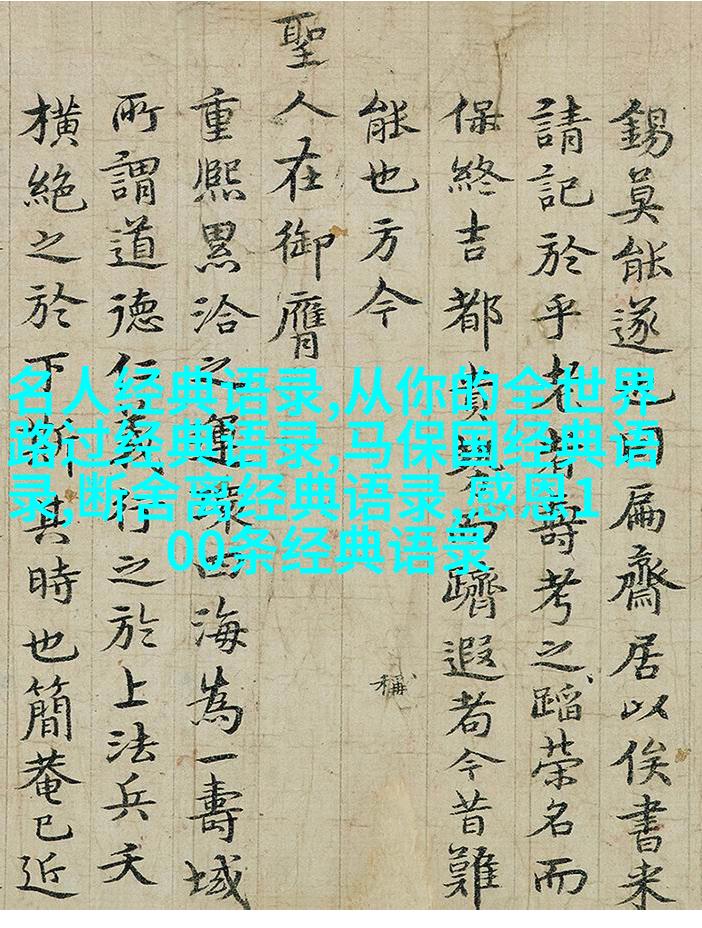 錫莫能遂也因扁齋居以俟書来
請記於乎老者壽考之蹈榮名而
保終吉都貴躋遐者今昔難
能也方今
稱
聖人在御膺
重熙累洽之運環四海為一壽域
所謂道德仁義行之於上法兵夭
橫絶之於下斯其時也簡菴已近
名人经典语录,从你的全世界
路过经典语录,马保国经典语
录,断舍离经典语录,感恩1
00条经典语录